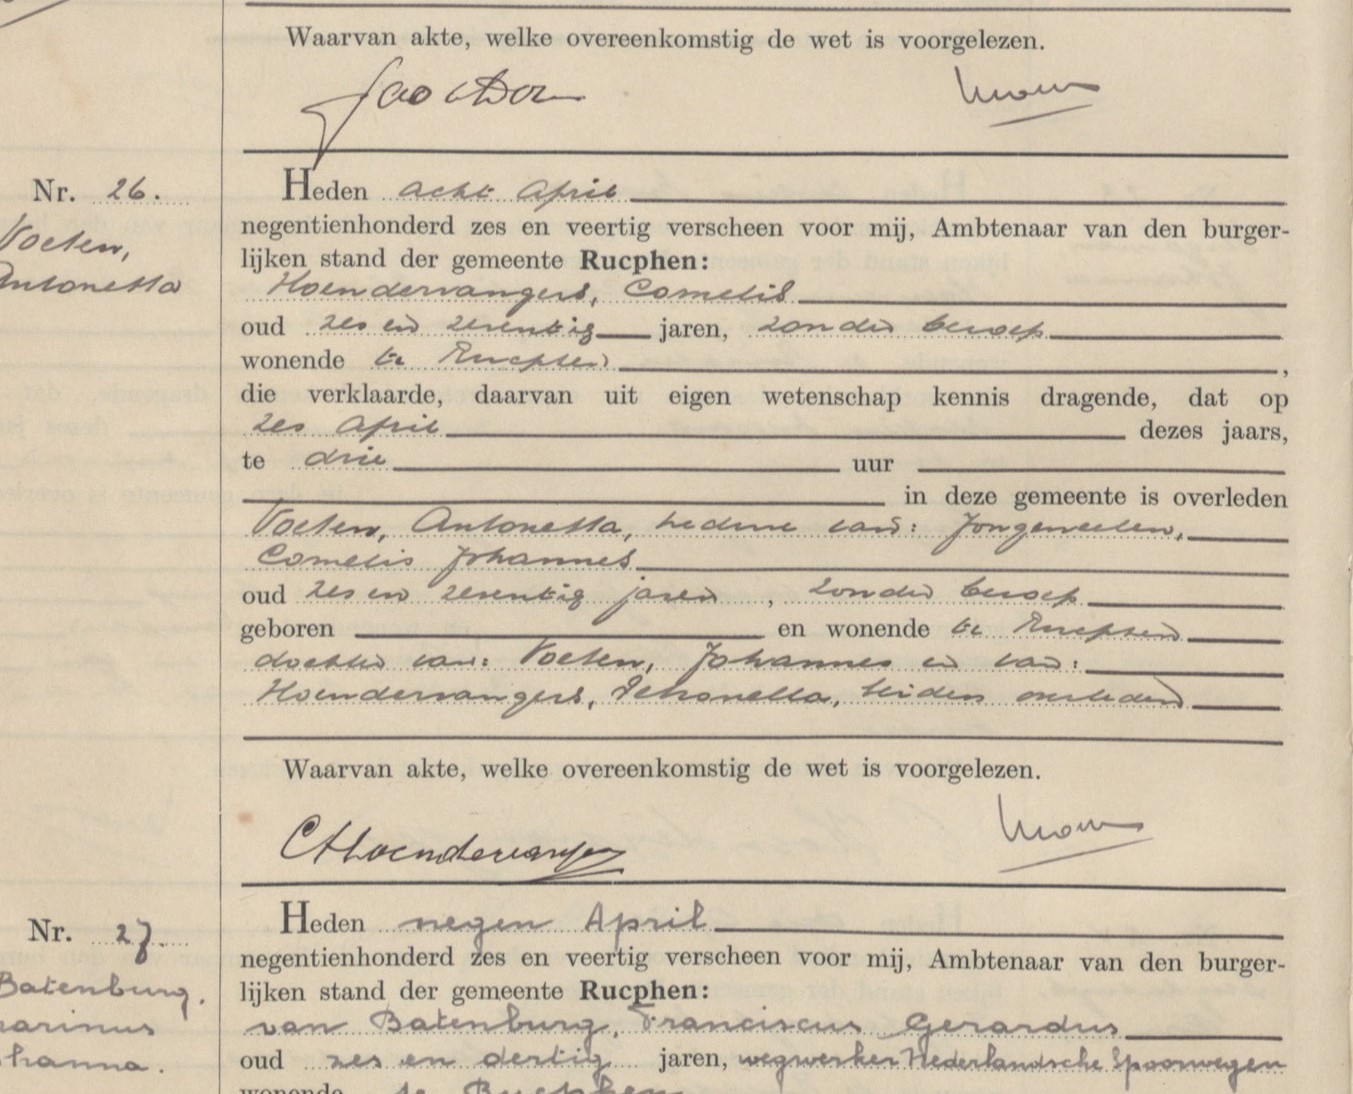 Waarvan akte, welke overeenkomstig de wet is voorgelezen.
Nr. 26.
Voeten,
Antonetta
Heden acht April
negentienhonderd zes en veertig verscheen voor mij, Ambtenaar van den burger-
lijken stand der gemeente Rucphen:
Hoendervangers, Cornelis
oud zes en zeventig jaren, zonder beroep
wonende te Rucphen,
die verklaarde, daarvan uit eigen wetenschap kennis dragende, dat op
zes April dezes jaars,
te drie uur
in deze gemeente is overleden
Voeten, Antonetta, weduwe van: Jongeneelen,
Cornelis Johannes
oud zes en zeventig jaren, zonder beroep
geboren en wonende te Rucphen
dochter van: Voeten, Johannes en van:
Hoendervangers, Petronella, beiden overleden
Waarvan akte, welke overeenkomstig de wet is voorgelezen.
CHoendervangers
Nr. 27.
Batenburg,
arinus
hanna.
Heden negen April
negentienhonderd zes en veertig verscheen voor mij, Ambtenaar van den burger-
lijken stand der gemeente Rucphen:
van Batenburg, Franciscus Gerardus
oud zes en dertig jaren, wegwerker Nederlandsche Spoorwegen
wonende te Rucphen